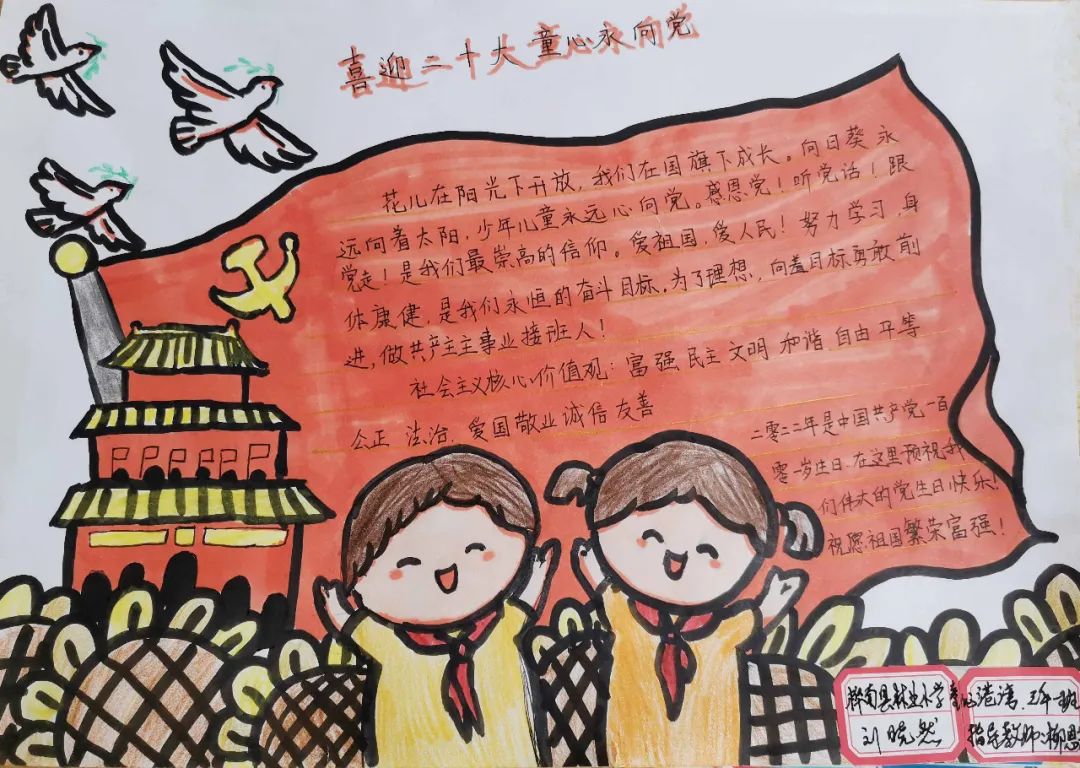 喜迎二十大童心永向党
花儿在阳光下开放，我们在国旗下成长。向日葵永
远向着太阳，少年儿童永远心向党。感恩党！听党话！跟
党走！是我们最崇高的信仰。爱祖国，爱人民！努力学习，身
体康健，是我们永恒的奋斗目标，为了理想，向着目标勇敢前
进，做共产主主事业接班人！
社会主义核心价值观：富强 民主 文明 和谐 自由 平等
公正 法治，爱国敬业诚信友善
二零二二年是中国共产党一百
零一岁生日，在这里预祝我
们伟大的党生日快乐！
祝愿祖国繁荣富强！
桦南县林业小学
刘晓然
港湾 三年一班
指导教师：柳恩